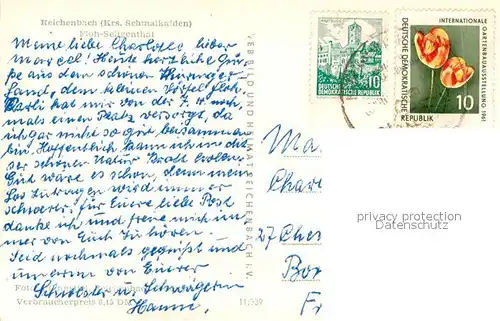 Reichenbach (Krs. Schmalkalden)
Floh-Seligenthal
Meine liebe Charlotte lieber
Marcel! Heute herzliche Grüs-
se aus dem schönen Thüringer
Land, dem kleinen Dörfel Floh.
hat mir von der
mals einen Platz versorgt, da
ich gar nicht so gut beisammen
bin. Hoffentlich kann ich in die-
ser schönen Natur Kraft holen.
Gut wäre es schon, denn mein
Los zu tragen wird immer
schwerer. Für Eure liebe Post
danke ich und freue mich im-
mer von Euch zu hören.
Seid nochmals gegrüßt und
umarmt von Eurer
Schwester u. Schwägerin
Hanne.
Foto
Verbraucherpreis 0,15 DM
H/539
VEB BILD UND HEIMAT REICHENBACH I. V.
10
DEUTSCHE DEMOKRATISCHE REPUBLIK
INTERNATIONALE
GARTENBAUAUSSTELLUNG 1961
DEUTSCHE DEMOKRATISCHE
REPUBLIK
10
Ma
Char
27 Cher
Bo
F
privacy protection
Datenschutz